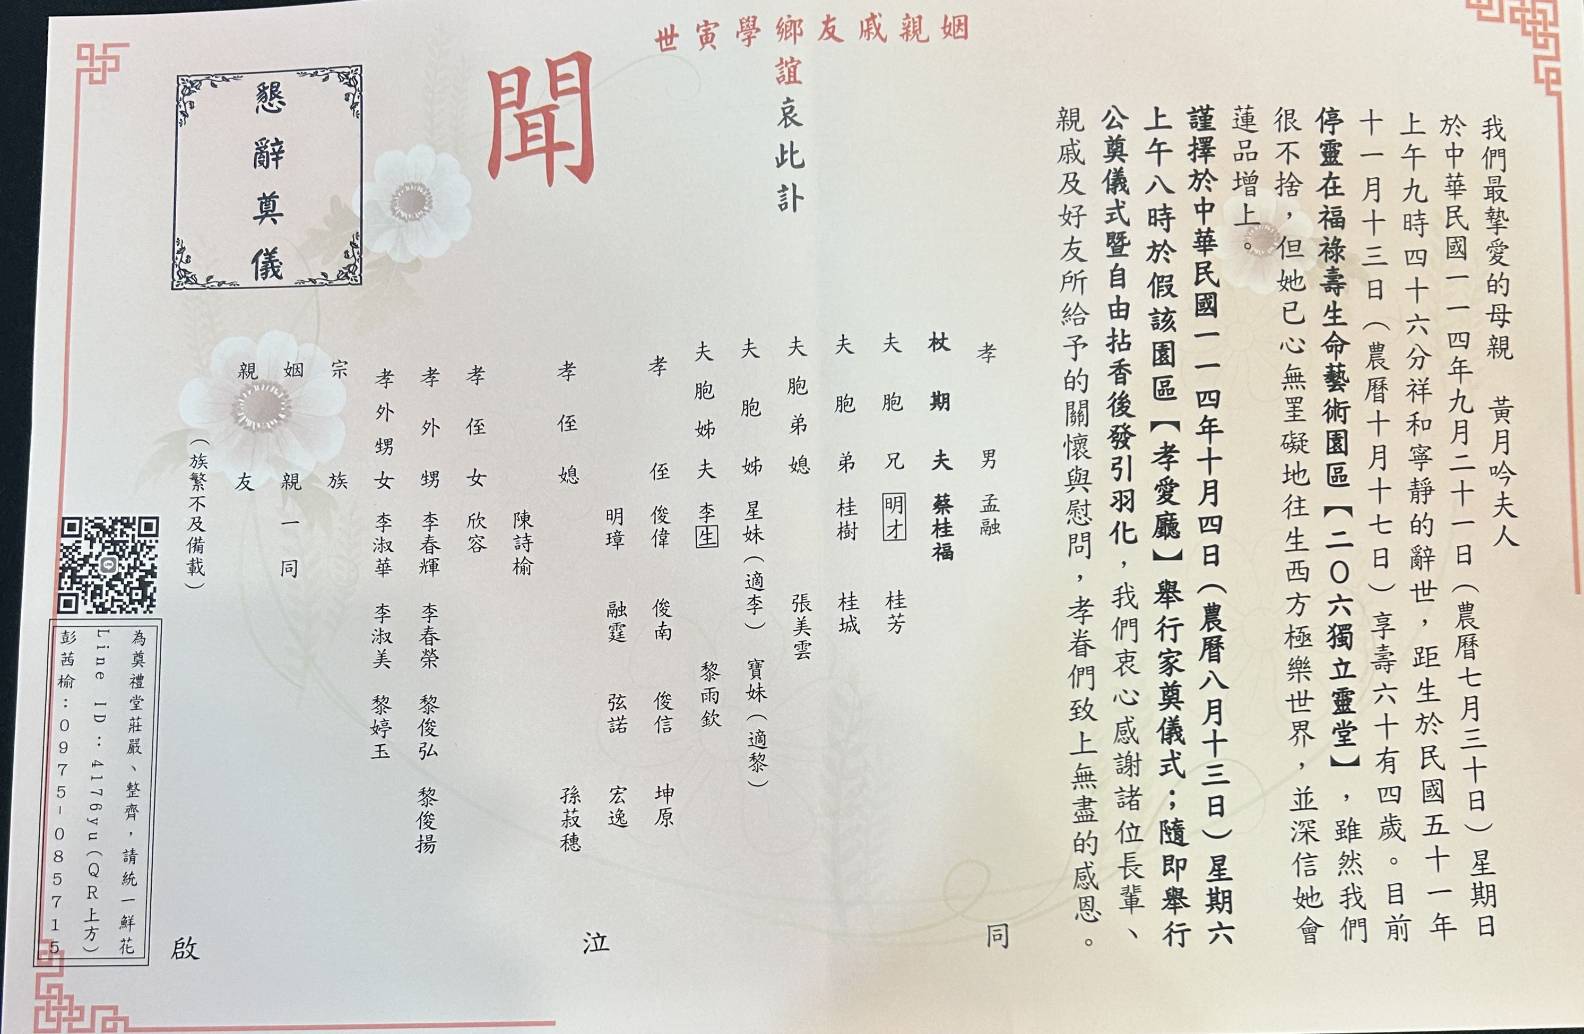 我們最摯愛的母親　黃月吟夫人
於中華民國一一四年九月二十一日（農曆七月三十日）星期日
上午九時四十六分祥和寧靜的辭世，距生於民國五十一年
十一月十三日（農曆十月十七日）享壽六十有四歲。目前
停靈在福祿壽生命藝術園區【二０六獨立靈堂】，雖然我們
很不捨，但她已心無罣礙地往生西方極樂世界，並深信她會
蓮品增上。
謹擇於中華民國一一四年十月四日（農曆八月十三日）星期六
上午八時於假該園區【孝愛廳】舉行家奠儀式；隨即舉行
公奠儀式暨自由拈香後發引羽化，我們衷心感謝諸位長輩、
親戚及好友所給予的關懷與慰問，孝眷們致上無盡的感恩。
姻親戚友鄉學寅世
誼哀此訃
聞
孝男 孟融
杖期夫 蔡桂福
夫胞兄 明才 桂芳
夫胞弟 桂樹 桂城
夫胞弟媳 張美雲
夫胞姊 星妹（適李） 寶妹（適黎）
夫胞姊夫 李生 黎雨欽
孝侄 俊偉 俊南 俊信 坤原
明璋 融霆 弦諾 宏逸
孝侄媳 孫菽穗
陳詩榆
孝侄女 欣容
孝外甥 李春輝 李春榮 黎俊弘 黎俊揚
孝外甥女 李淑華 李淑美 黎婷玉
宗族
姻親一同
親友
（族繁不及備載）
同
泣
啟
懇辭奠儀
為奠禮堂莊嚴、整齊，請統一鮮花
Line ID：4176yu（QR上方）
彭茜榆：0975-085715